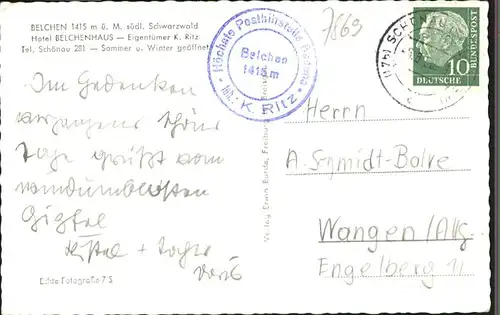 BELCHEN 1415 m ü. M. südl. Schwarzwald
Hotel BELCHENHAUS — Eigentümer K. Ritz
Tel. Schönau 281 — Sommer u. Winter geöffnet
Höchste Posthilfsstelle Badens
Belchen
1415 m
Inh.: K. Ritz
7869
(17b) SCHÖNAU
DEUTSCHE
BUNDESPOST
10
Im Gedenken
vergangener schöner
Tage grüßt vom
windumbrausten
Gipfel
+
Echte Fotografie 7 S
Verlag Erwin Burda, Freiburg
Herrn
A. Schmidt-Balve
Wangen/Allg.
Engelberg 11